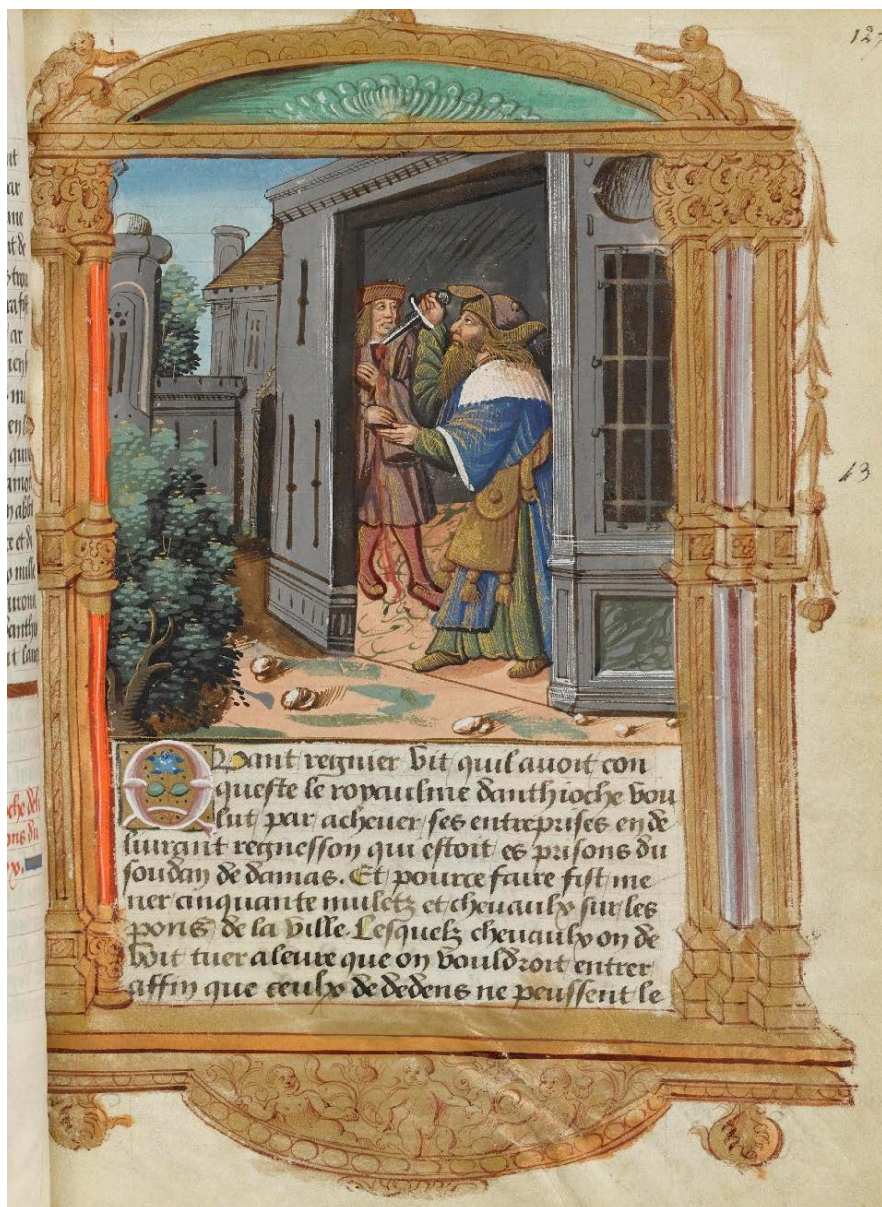 127
13
Quant regnier vit quil avoit con
queste le royaulme danthioche vou
lut par achever ses entreprises en de
livrant regnesson qui estoit es prisons du
soudan de damas. Et pource faire fist me
ner cinquante muletz et chevaulx sur les
pons de la ville. Lesquelz chevaulx on de
voit tuer a leure que on vouldroit entrer
affin que ceulx de dedens ne peussent le